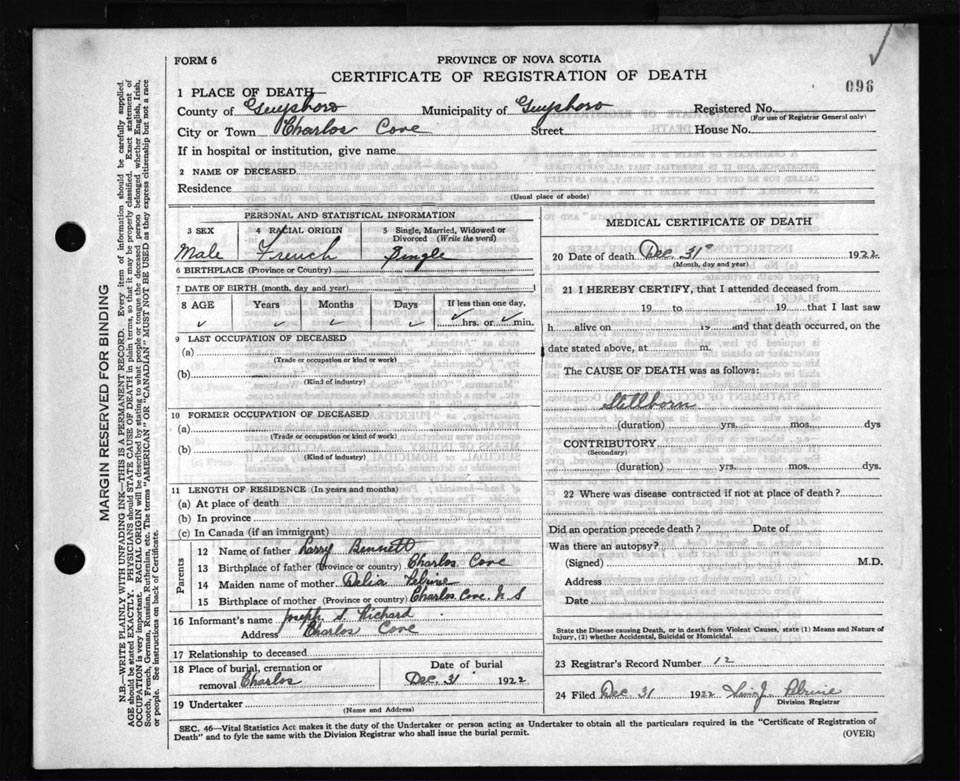 FORM 6
PROVINCE OF NOVA SCOTIA
CERTIFICATE OF REGISTRATION OF DEATH
096
1 PLACE OF DEATH—
County of Guysboro Municipality of Guysboro Registered No.
(For use of Registrar General only)
City or Town Charlos Cove Street House No.
If in hospital or institution, give name
2 NAME OF DECEASED
Residence
(Usual place of abode)
PERSONAL AND STATISTICAL INFORMATION
3 SEX 4 RACIAL ORIGIN 5 Single, Married, Widowed or Divorced (Write the word)
Male French Single
6 BIRTHPLACE (Province or Country)
7 DATE OF BIRTH (month, day and year)
8 AGE Years Months Days If less than one day,
hrs. or min.
9 LAST OCCUPATION OF DECEASED
(a)
(Trade or occupation or kind or work)
(b)
(Kind of industry)
10 FORMER OCCUPATION OF DECEASED
(a)
(Trade or occupation or kind of work)
(b)
(Kind of industry)
11 LENGTH OF RESIDENCE (In years and months)
(a) At place of death
(b) In province
(c) In Canada (if an immigrant)
Parents
12 Name of father Larry Bennett
13 Birthplace of father (Province or country) Charlos Cove
14 Maiden name of mother Delia
15 Birthplace of mother (Province or country) Charlos Cove. N S
16 Informant's name Joseph Richard
Address Charlos Cove
17 Relationship to deceased
18 Place of burial, cremation or removal Charlos
Date of burial
Dec. 31 1922
19 Undertaker
(Name and Address)
MEDICAL CERTIFICATE OF DEATH
20 Date of death Dec. 31 1922
(Month, day and year)
21 I HEREBY CERTIFY, that I attended deceased from
19 to 19 that I last saw
h alive on 19 and that death occurred, on the
date stated above, at m.
The CAUSE OF DEATH was as follows:
Stillborn
(duration) yrs. mos. dys
CONTRIBUTORY
(Secondary)
(duration) yrs. mos. dys.
22 Where was disease contracted if not at place of death?
Did an operation precede death? Date of
Was there an autopsy?
(Signed) M.D.
Address
Date
State the Disease causing Death, or in death from Violent Causes, state (1) Means and Nature of
Injury, (2) whether Accidental, Suicidal or Homicidal.
23 Registrar's Record Number 12
24 Filed Dec 31 1922
Division Registrar
SEC. 46—Vital Statistics Act makes it the duty of the Undertaker or person acting as Undertaker to obtain all the particulars required in the "Certificate of Registration of
Death" and to fyle the same with the Division Registrar who shall issue the burial permit.
(OVER)
MARGIN RESERVED FOR BINDING
N.B.—WRITE PLAINLY WITH UNFADING INK—THIS IS A PERMANENT RECORD. Every item of information should be carefully supplied.
AGE should be stated EXACTLY. PHYSICIANS should STATE CAUSE OF DEATH in plain terms, so that it may be properly classified. Exact statement of
OCCUPATION is very important. RACIAL ORIGIN will be described by stating to what people or tongue the deceased person belonged, whether English, Irish,
Scotch, French, German, Russian, Ruthenian, etc. The terms "AMERICAN" OR "CANADIAN" MUST NOT BE USED as they express citizenship but not a race
or people. See instructions on back of Certificate.